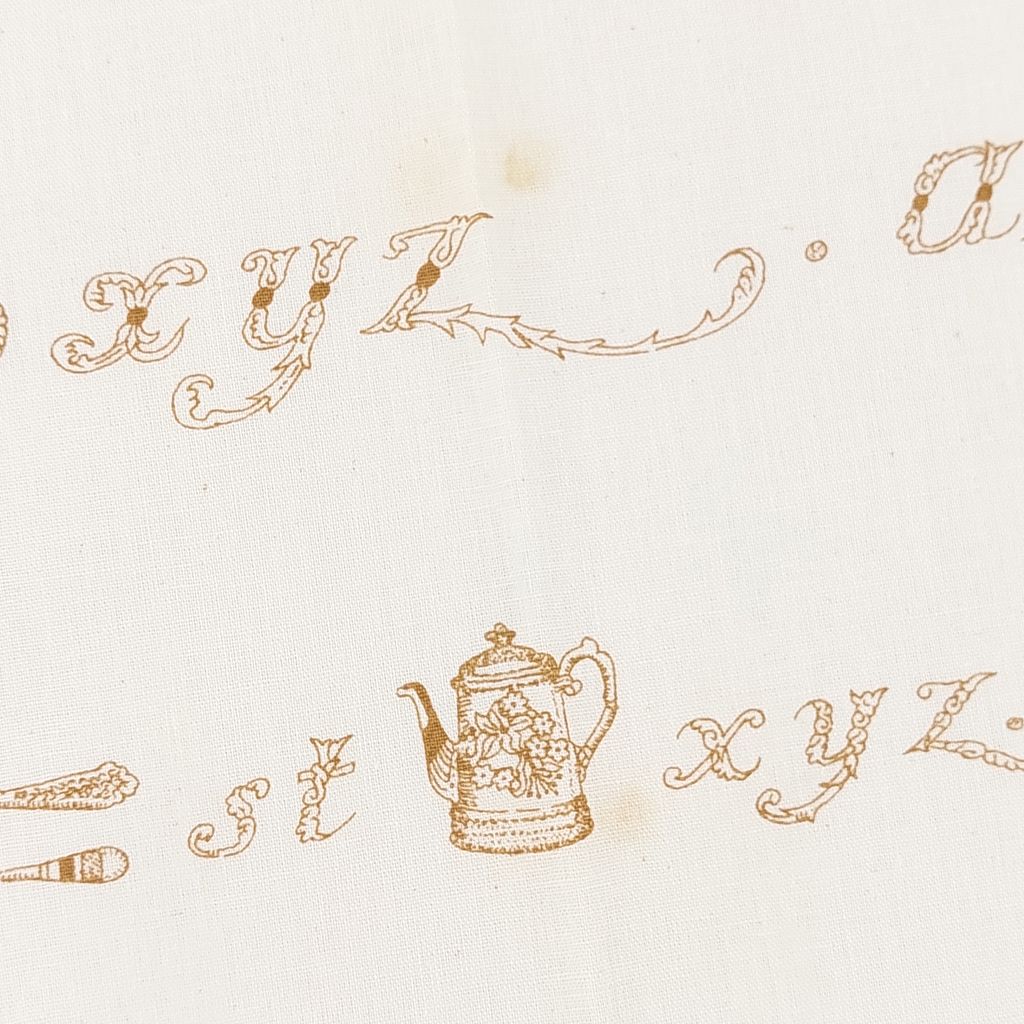 xyz . a
st xyz.